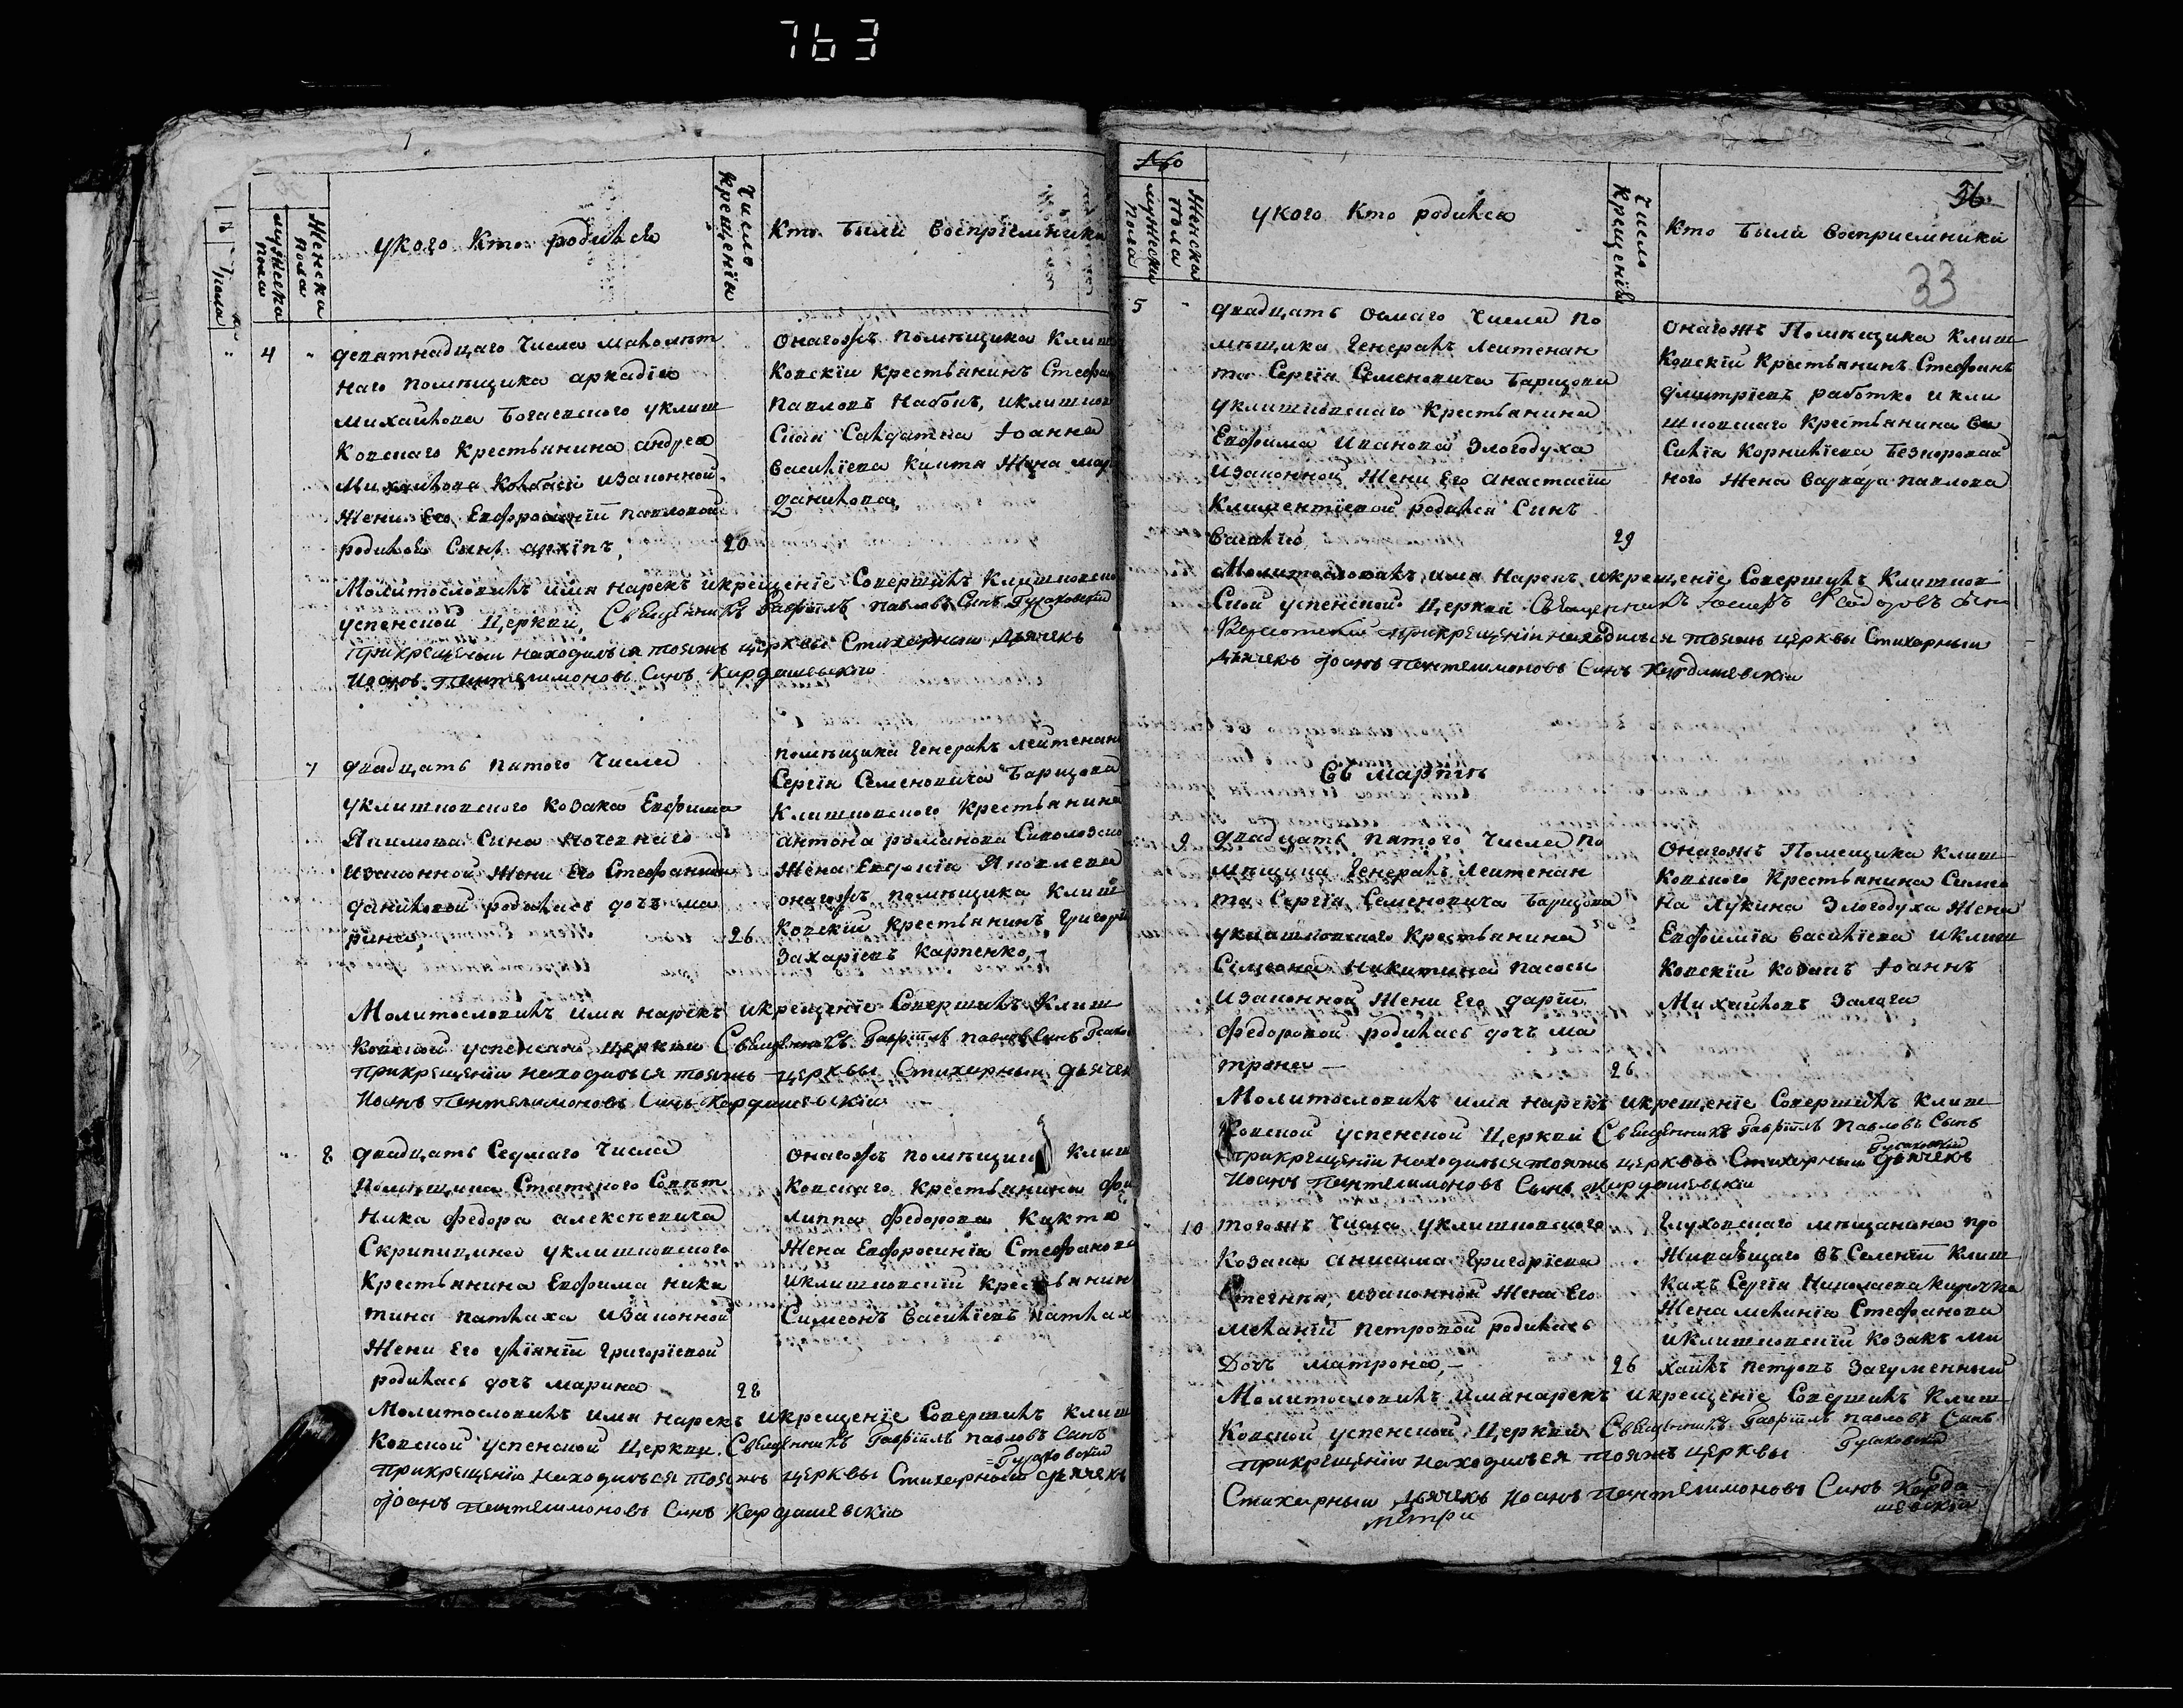 763
Женска пола
мужеска пола
у кого кто родился
Число крещенія
Кто были восприемники
4
девятнадцаго числа малолѣт
наго помѣщика аркадія
михайлова Богаевского уклиш
ковскаго крестьянина андрея
Михайлова изаконной
жени его Евфросиніи павловой
родился Синъ архіпъ,
20
онагожъ помѣщика Клиш
ковскій крестьянинъ Стефан
павловъ иклишков
Ская Салдатка Іоанна
василіева жена мар
данилова,
Молитвословилъ имя нарекъ икрещеніе Совершилъ Клишковско
успенской Церкви, Священникъ Гавріилъ павловъ Синъ Гусаковский
прикрещении находился тояжъ церквы Стихарный Дьячекъ
Иоанъ Пантелимоновъ Синъ Кардашевскій
7
двадцать пятого числа
уклишковского козака Евфима
Сина
изаконной жени Его Стефаниди
даниловой родилась дочъ ма
рина,
26
помѣщика генералъ леитенан
Сергія Семеновича Барщова
Клишковского Крестьянина
антона романова
жена Евгенія Яковлева
онагожъ помѣщика клиш
ковскій крестьянинъ григорі
захаріевъ Карпенко,
Молитвословилъ имя нарекъ икрещеніе Совершилъ Клиш
ковской успенской церкви Священникъ Гавріилъ павловъ Синъ
прикрещеніи находился тояжъ церквы Стихарный дьячек
Иоанъ Пантелимоновъ Синъ Кардашевскій
8
двадцать Седмаго Числа
помѣщика Статского Совѣт
ника федора алексѣевича
Скрипицина уклишковского
крестьянина Евфима ники
тина патлаха изаконной
жени Его уліянніи григоріевой
родилась дочъ марина
28
онагожъ помѣщика Клиш
ковскаго крестьянина фи
липпа федорова
жена Евфросинія Стефанова
иклишковскій крестьянин
Симеонъ василіевъ патлах
Молитвословилъ имя нарекъ икрещеніе Совершилъ клиш
ковской успенской Церкви. Священникъ Гавріилъ павловъ Синъ
Гусаковский
прикрещеніи находился тояжъ церквы Стихарный дьячекъ
Іоанъ Пантелимоновъ Синъ Кардашевскій
160
мужеска пола
Женска пола
у кого кто родился
Число крещенія
кто были восприемники
36
33
5
двадцать осмаго числа по
мѣщика генералъ леитенан
та Сергія Семеновича Барщова
уклишковскаго крестьянина
Евфима Иванова Злогодуха
изаконной жени Его анастасіи
Климентіевой родился Синъ
василій
29
онагожъ Помѣщика клиш
ковскій Крестьянинъ Стефанъ
дмитріевъ работко икли
шковскаго Крестьянина ва
Силія Корниліева
ного жена варвара павлова
Молитвословилъ имя Нарекъ икрещеніе Совершилъ Клишков
Ской успенской Церкви Священникъ Іосифъ Феодоровъ Синъ
прикрещеніи находился тояжъ церквы Стихарный
Дьячекъ Іоанъ Пантелимоновъ Синъ Кардашевскій
Въ Мартѣ
9
двадцать пятого числа по
мѣщика генералъ леитенан
та Сергія Семеновича Барщова
уклишковского Крестьянина
Сімеона никитина
изаконной жени Его даріи
федоровой родилась дочъ ма
трона
26
Онагожъ Помещика клиш
ковского Крестьянина Симео
на Лукина Злогодуха жена
Евфимія василіева иклиш
ковскій козакъ Іоаннъ
Михайловъ Залога
Молитвословилъ имя нарекъ икрещеніе Совершилъ Клиш
ковской успенской Церкви Священникъ Гавріилъ Павловъ Синъ
Гусаковский
прикрещеніи находился тояжъ церквы Стихарный дьячекъ
Иоанъ Пантелимоновъ Синъ Кардашевскій
10
тогожъ числа уклишковского
козака анисима григоріева
изаконной жена Его
меланіи петровой родилась
Дочъ матрона,
26
глуховскаго мѣщанина про
живающаго въ Селеніи Клиш
кахъ Сергія Николаева
жена меланія Стефанова
иклишковскій козакъ ми
хаилъ петровъ Загуменный
Молитвословилъ имя нарекъ икрещеніе Совершилъ Клиш
ковской успенской Церкви Священникъ Гавріилъ павловъ Синъ
Гусаковский
прикрещеніи находился тояжъ церквы
Стихарный Дьячекъ Иоанъ Пантелимоновъ Синъ Карда
шевскій